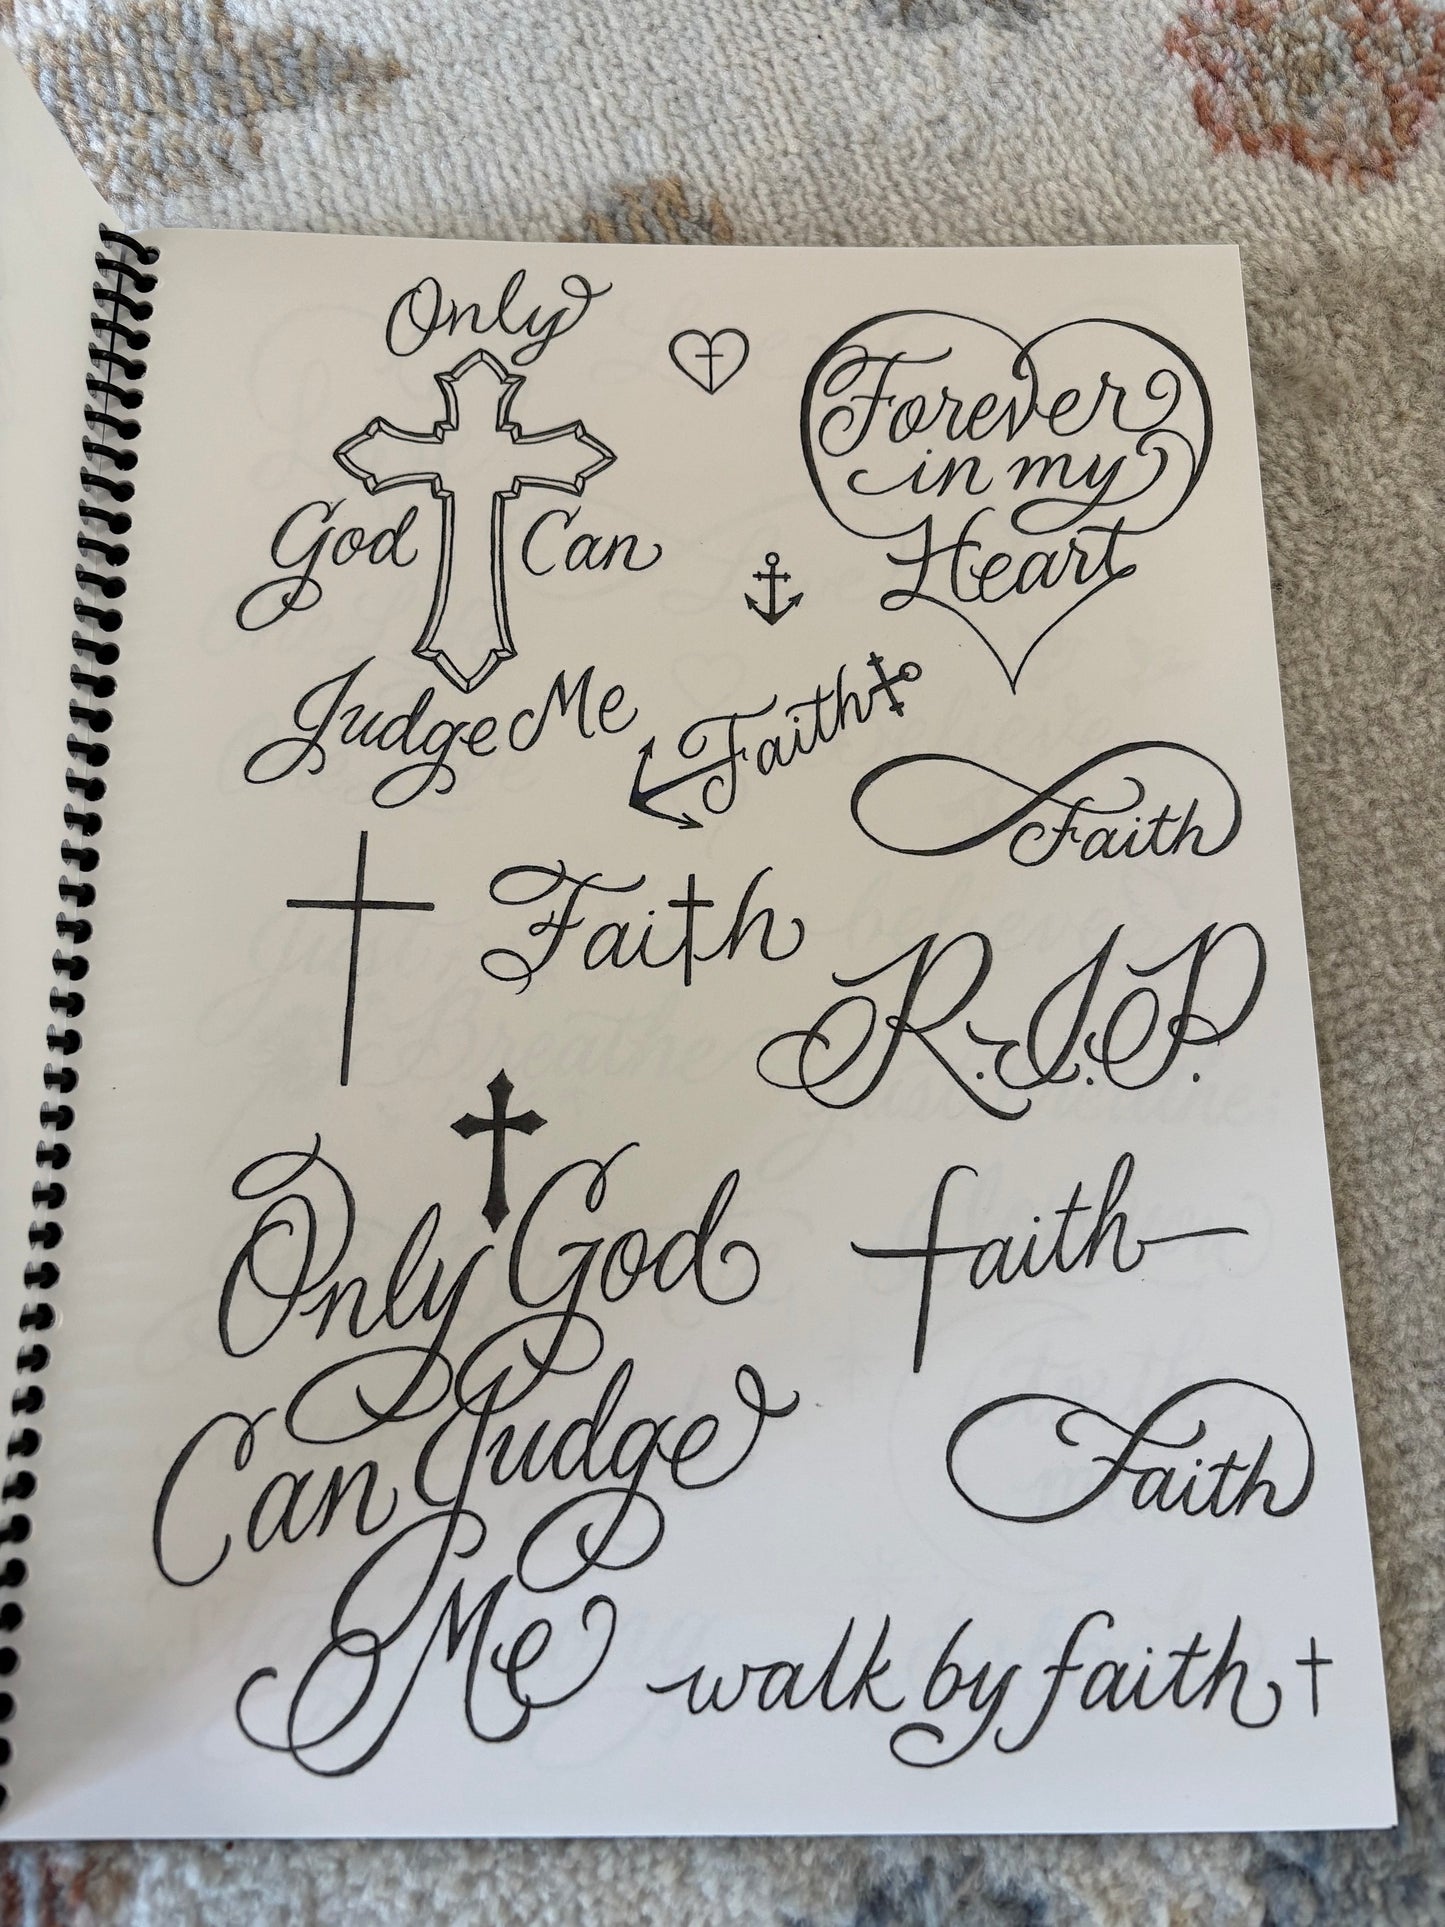 Only
God Can
Judge Me
Forever
in my
Heart
Faith
Faith
Faith
R.I.P.
Only God
Can Judge
Me
faith
Faith
walk by faith